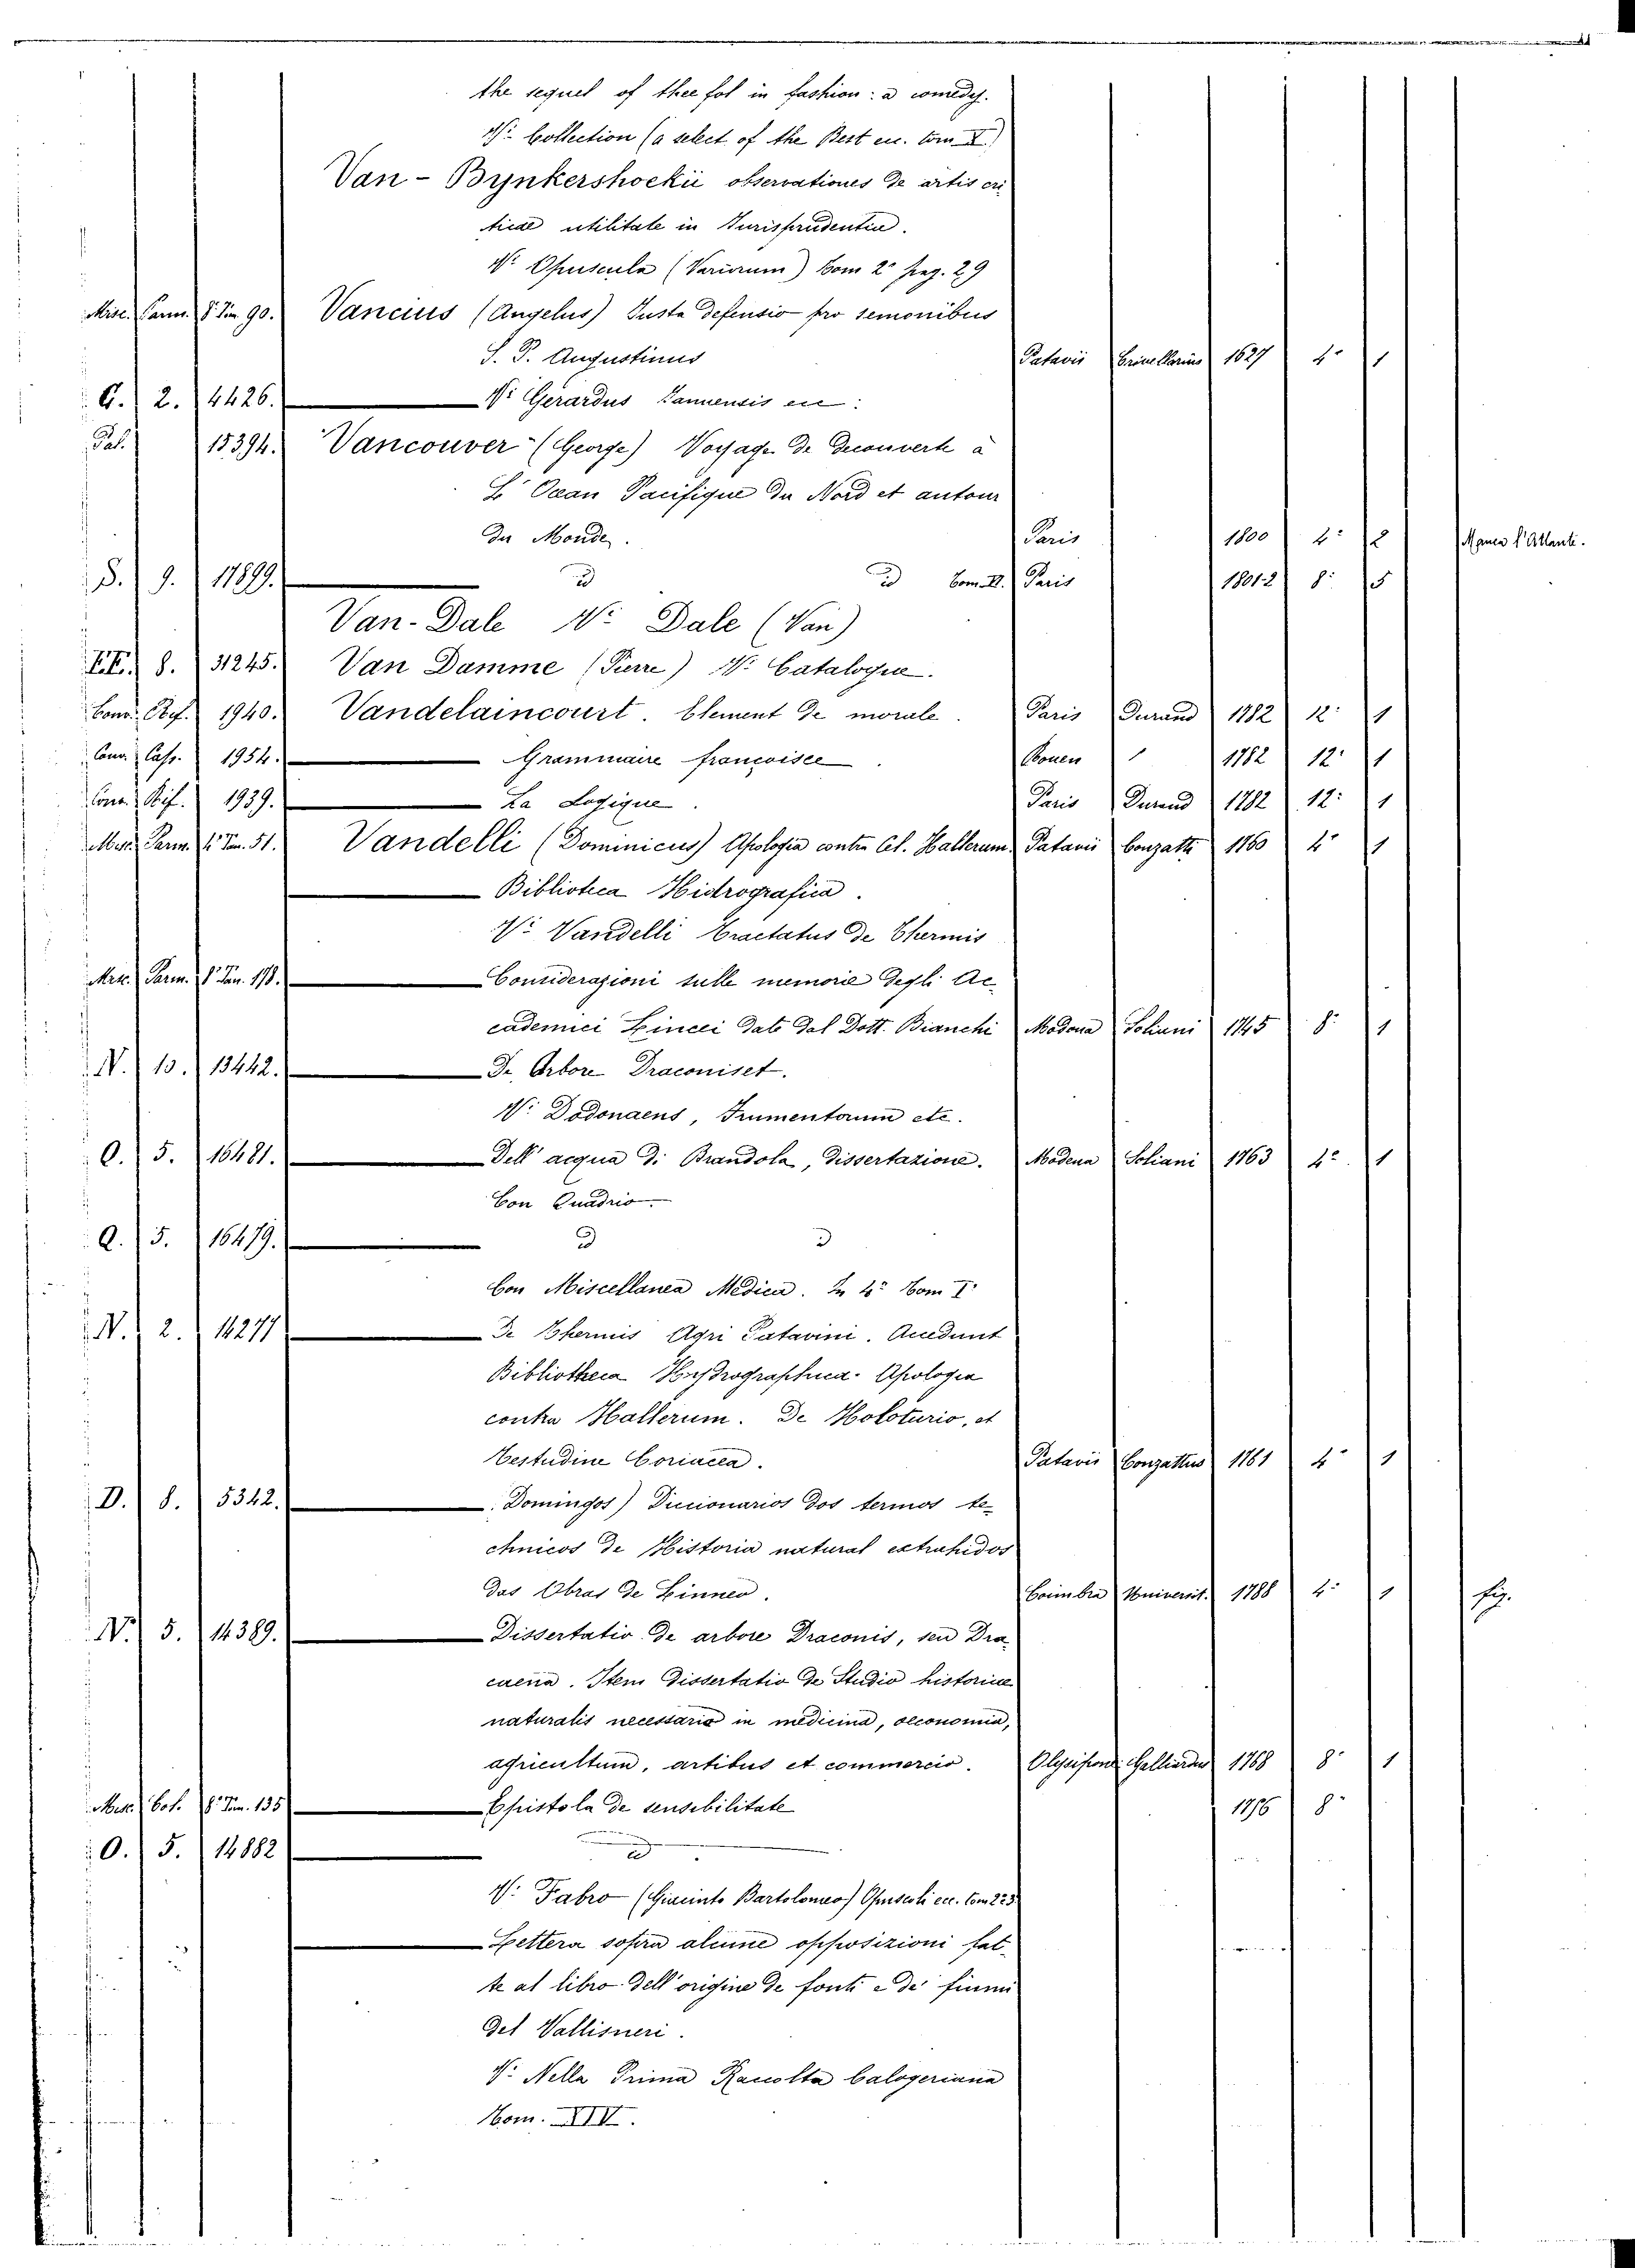 the sequel of thee fol in fashion: a comedy.
V: Collection (a select of the Best ec. tom I.)
Van-Bynkershockii observationes de artis cri
ticae utilitate in Jurisprudentia.
V: Opuscula (Variorum) Tom 2° pag. 29
Misc. Parm. 8° Tom 90. Vancius (Angelus) Justa defensio pro semonibus
S. P. Augustinus Patavii Crivellarius 1627 4° 1
G. 2. 4426. V: Gerardus Pannensis ec:
Pal. 15394. Vancouver (George) Voyage de decouverte à
L'Ocean Pacifique du Nord et autour
du Monde. Paris 1800 4° 2 Manca l'Atlante.
S. 9. 17899. id id Tom. II. Paris 1801-2 8° 5
Van-Dale V: Dale (Van)
FF. 8. 31245. Van Damme (Pierre) V: Catalogue.
Conv. Rif. 1940. Vandelaincourt. Element de morale. Paris Durand 1782 12° 1
Conv. Capp. 1954. Grammaire francoisee. Rouen 1782 12° 1
Conv. Rif. 1939. La Logique. Paris Durand 1782 12° 1
Misc. Parm. 4° Tom. 51. Vandelli (Dominicus) Apologia contra Cl. Hallerum Patavii Conzatti 1760 4° 1
Biblioteca Hidrografica.
V: Vandelli Tractatus de Thermis
Misc. Parm. 8° Tom. 178. Considerazioni sulle memorie degli Ac
cademici Lincei dato dal Dott. Bianchi Modona Soliani 1745 8° 1
N. 10. 13442. De Arbore Draconiset.
V: Dodonaens, Frumentorum etc.
O. 5. 16481. Dell' acqua di Brandola, dissertazione. Modena Soliani 1763 4° 1
Con Quadrio.
Q. 5. 16479. id id
Con Miscellanea Medica. In 4° Tom I°
N. 2. 14277 De Thermis Agri Patavini. Accedunt
Bibliotheca Hydrographica. Apologia
contra Hallerum. De Holoturio, et
Testudine Coriacea. Patavii Conzattus 1761 4° 1
D. 8. 5342. Domingos) Diccionarios dos termos te-
chnicos de Historia natural extrahidos
das Obras de Linneo. Coimbra Universit. 1788 4° 1 fig.
N. 5. 14389. Dissertatio de arbore Draconis, seu Dra
caena. Item dissertatio de Studio historiae
naturalis necessario in medicina, oeconomia,
agricultum, artibus et commercio. Olysipone Galliardus 1768 8° 1
Misc. Bot. 8° Tom. 135 Epistola de sensibilitate 1776 8°
O. 5. 14882 id
V: Fabro (Giacinto Bartolomeo) Opuscoli ecc. tom 223
Lettera sopra alcune opposizioni fat-
te al libro dell'origine de fonti e de' fiumi
del Vallisneri.
V: Nella Prima Raccolta Calogeriana
Tom. XIV.